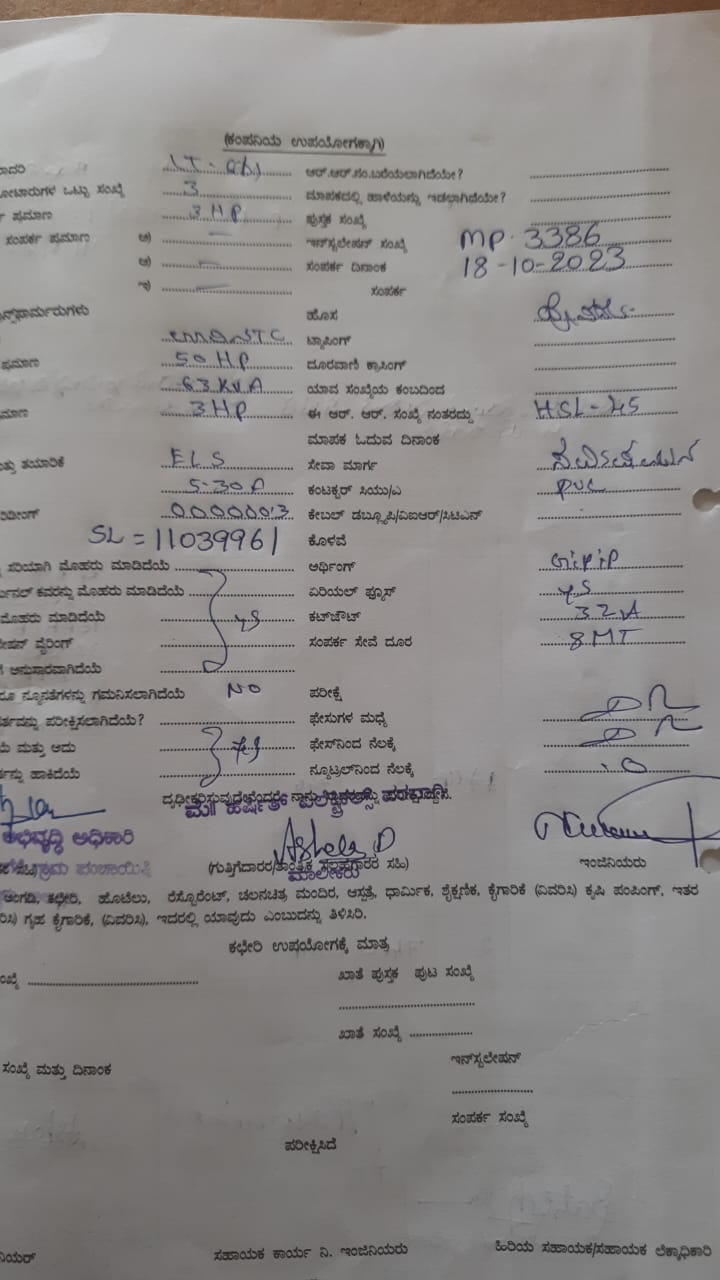 (ಕಂಪನಿಯ ಉಪಯೋಗಕ್ಕಾಗಿ)
ಆರ್.ಆರ್.ನಂ.ಬರೆಯಲಾಗಿದೆಯೇ?
ಒಟ್ಟು ಸಂಖ್ಯೆ 3 ಮಾಪಕದಲ್ಲಿ ಹಾಳೆಯನ್ನು ಇಡಲಾಗಿದೆಯೇ?
ಪ್ರಮಾಣ 3 HP ಪುಸ್ತಕ ಸಂಖ್ಯೆ
ಸಂಪರ್ಕ ಪ್ರಮಾಣ ಅ) — ಇನ್‌ಸ್ಟಲೇಷನ್ ಸಂಖ್ಯೆ MP. 3386
ಆ) — ಸಂಪರ್ಕ ದಿನಾಂಕ 18-10-2023
ಇ) — ಸಂಪರ್ಕ
ಹೊಸ
ಟ್ಯಾಪಿಂಗ್
ಪ್ರಮಾಣ 50 HP ದೂರವಾಣಿ ಕ್ರಾಸಿಂಗ್
63 KVA ಯಾವ ಸಂಖ್ಯೆಯ ಕಂಬದಿಂದ
3 HP ಈ ಆರ್. ಆರ್. ಸಂಖ್ಯೆ ನಂತರದ್ದು HSL-45
ಮಾಪಕ ಓದುವ ದಿನಾಂಕ
ತಯಾರಿಕೆ ELS ಸೇವಾ ಮಾರ್ಗ
5-30A ಕಂಟಕ್ಟರ್ ಸಿಯು/ಎ PVC
0000003 ಕೇಬಲ್ ಡಬ್ಲ್ಯೂಪಿ/ವಿಐಆರ್/ಸಿಟಿಎನ್
SL = 11039961 ಕೊಳವೆ
ಸರಿಯಾಗಿ ಮೊಹರು ಮಾಡಿದೆಯೆ ಅರ್ಥಿಂಗ್ GIPIP
ಕವರನ್ನು ಮೊಹರು ಮಾಡಿದೆಯೆ ಏರಿಯಲ್ ಫ್ಯೂಸ್ ys
ಮೊಹರು ಮಾಡಿದೆಯೆ ys ಕಟ್‌ಔಟ್ 32A
ವೈರಿಂಗ್ ಸಂಪರ್ಕ ಸೇವೆ ದೂರ 8 MT
ಅನುಸಾರವಾಗಿದೆಯೆ
ನ್ಯೂನತೆಗಳನ್ನು ಗಮನಿಸಲಾಗಿದೆಯೆ NO ಪರೀಕ್ಷೆ
ಪರೀಕ್ಷಿಸಲಾಗಿದೆಯೆ? ಫೇಸುಗಳ ಮಧ್ಯೆ
ಮತ್ತು ಅದು ys ಫೇಸ್‌ನಿಂದ ನೆಲಕ್ಕೆ
ಹಾಕಿದೆಯೆ ನ್ಯೂಟ್ರಲ್‌ನಿಂದ ನೆಲಕ್ಕೆ .0
ಅಭಿವೃದ್ಧಿ ಅಧಿಕಾರಿ
ಗ್ರಾಮ ಪಂಚಾಯಿತಿ
ಮಾಲೀಕರು
ಇಂಜಿನಿಯರು
ಅಂಗಡಿ, ಕಛೇರಿ, ಹೊಟೆಲು, ರೆಸ್ಟೋರೆಂಟ್, ಚಲನಚಿತ್ರ ಮಂದಿರ, ಆಸ್ಪತ್ರೆ, ಧಾರ್ಮಿಕ, ಶೈಕ್ಷಣಿಕ, ಕೈಗಾರಿಕೆ (ವಿವರಿಸಿ) ಕೃಷಿ ಪಂಪಿಂಗ್, ಇತರ
ಗೃಹ ಕೈಗಾರಿಕೆ, (ವಿವರಿಸಿ), ಇದರಲ್ಲಿ ಯಾವುದು ಎಂಬುದನ್ನು ತಿಳಿಸಿರಿ.
ಕಛೇರಿ ಉಪಯೋಗಕ್ಕೆ ಮಾತ್ರ
ಖಾತೆ ಪುಸ್ತಕ ಪುಟ ಸಂಖ್ಯೆ
ಖಾತೆ ಸಂಖ್ಯೆ
ಸಂಖ್ಯೆ ಮತ್ತು ದಿನಾಂಕ ಇನ್‌ಸ್ಟಲೇಷನ್
ಸಂಪರ್ಕ ಸಂಖ್ಯೆ
ಪರೀಕ್ಷಿಸಿದೆ
ಸಹಾಯಕ ಕಾರ್ಯ ನಿ. ಇಂಜಿನಿಯರು ಹಿರಿಯ ಸಹಾಯಕ/ಸಹಾಯಕ ಲೆಕ್ಕಾಧಿಕಾರಿ